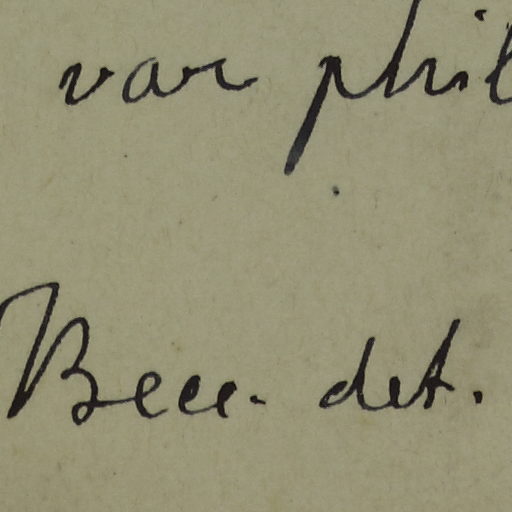 var phil
Becc. det.